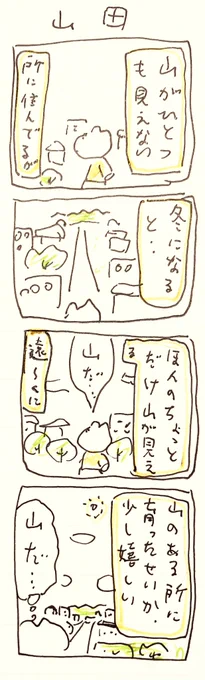 山田
山がひとつ
も見えない
所に住んでるが
冬になる
と‥
ほんのちょっと
だけ山が見え
る
山だ…
遠〜くに
山のある所に
育ったせいか
少し嬉しい
山だ…